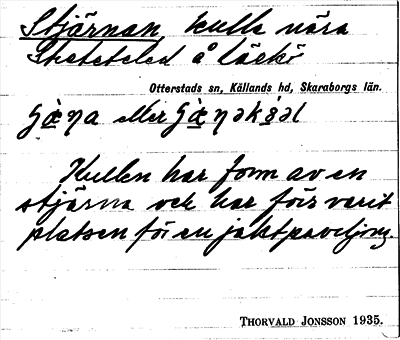 Stjärnan, kulle nära
å Läckö
Otterstads sn, Kållands hd, Skaraborgs län.
eller
Kullen har form av en
stjärna och har förr varit
platsen för en jaktpaviljong.
THORVALD JONSSON 1935.